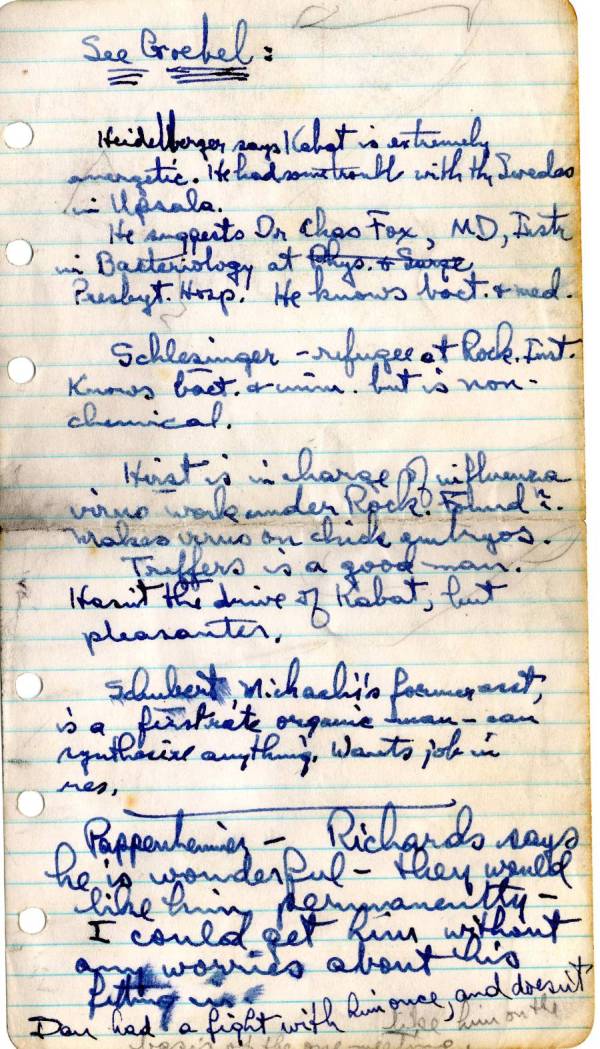 See Goebel:
Heidelberger says Kabat is extremely
energetic. He had some trouble with the Swedes
in Upsala.
He suggests Dr Chas Fox, MD, Instr
in Bacteriology at Phys. & Surge,
Presbyt. Hosp. He knows bact. & med.
Schlesinger - refugee at Rock. Inst.
Knows bact. & imm. but is non-
chemical.
Hirst is in charge of influenza
virus work under Rock. Found'n.
Makes virus on chick embryos.
Treffers is a good man.
Hasn't the drive of Kabat, but
pleasanter.
Schubert, Michaelis's former asst,
is a firstrate organic man - can
synthesize anything. Wants job in
res.
Pappenheimer - Richards says
he is wonderful - they would
like him permanently -
I could get him without
any worries about his
fitting in.
Dan had a fight with him once, and doesn't
like him on the
basis of the one meeting.